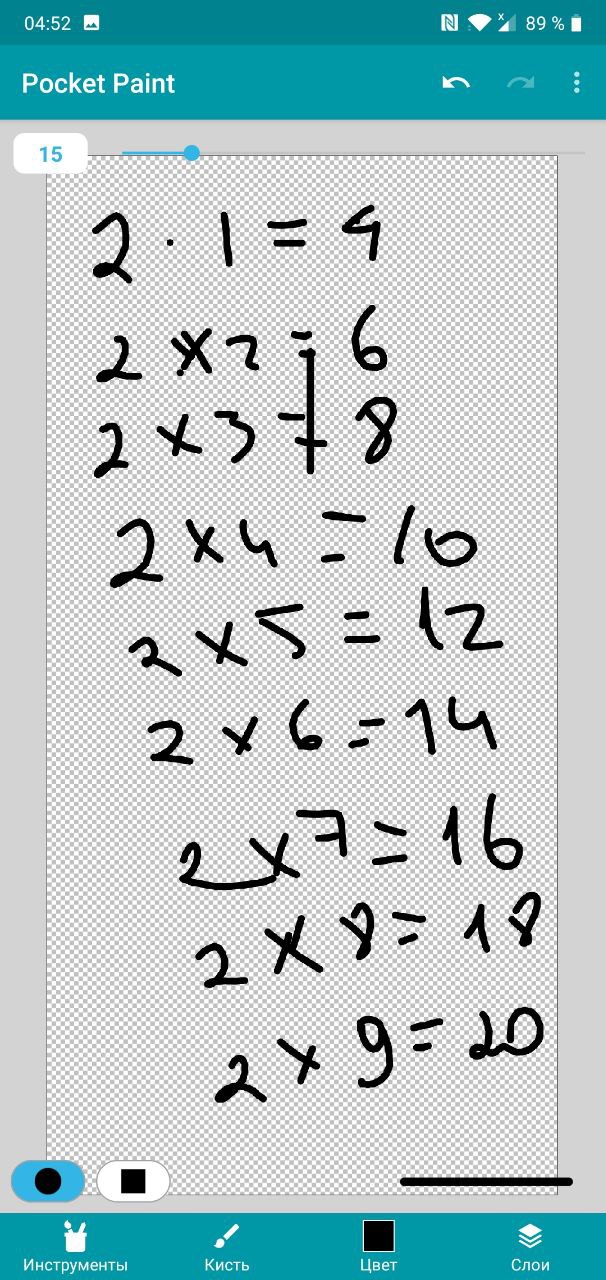 04:52 89 %
Pocket Paint
15
2 · 1 = 4
2 x 2 = 6
2 x 3 = 8
2 x 4 = 10
2 x 5 = 12
2 x 6 = 14
2 x 7 = 16
2 x 8 = 18
2 x 9 = 20
Инструменты Кисть Цвет Слои